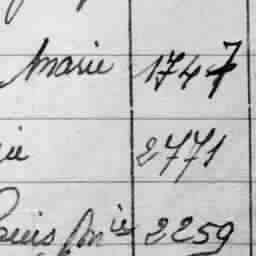 Marie 1747
ie 2771
Louis Mie 2259